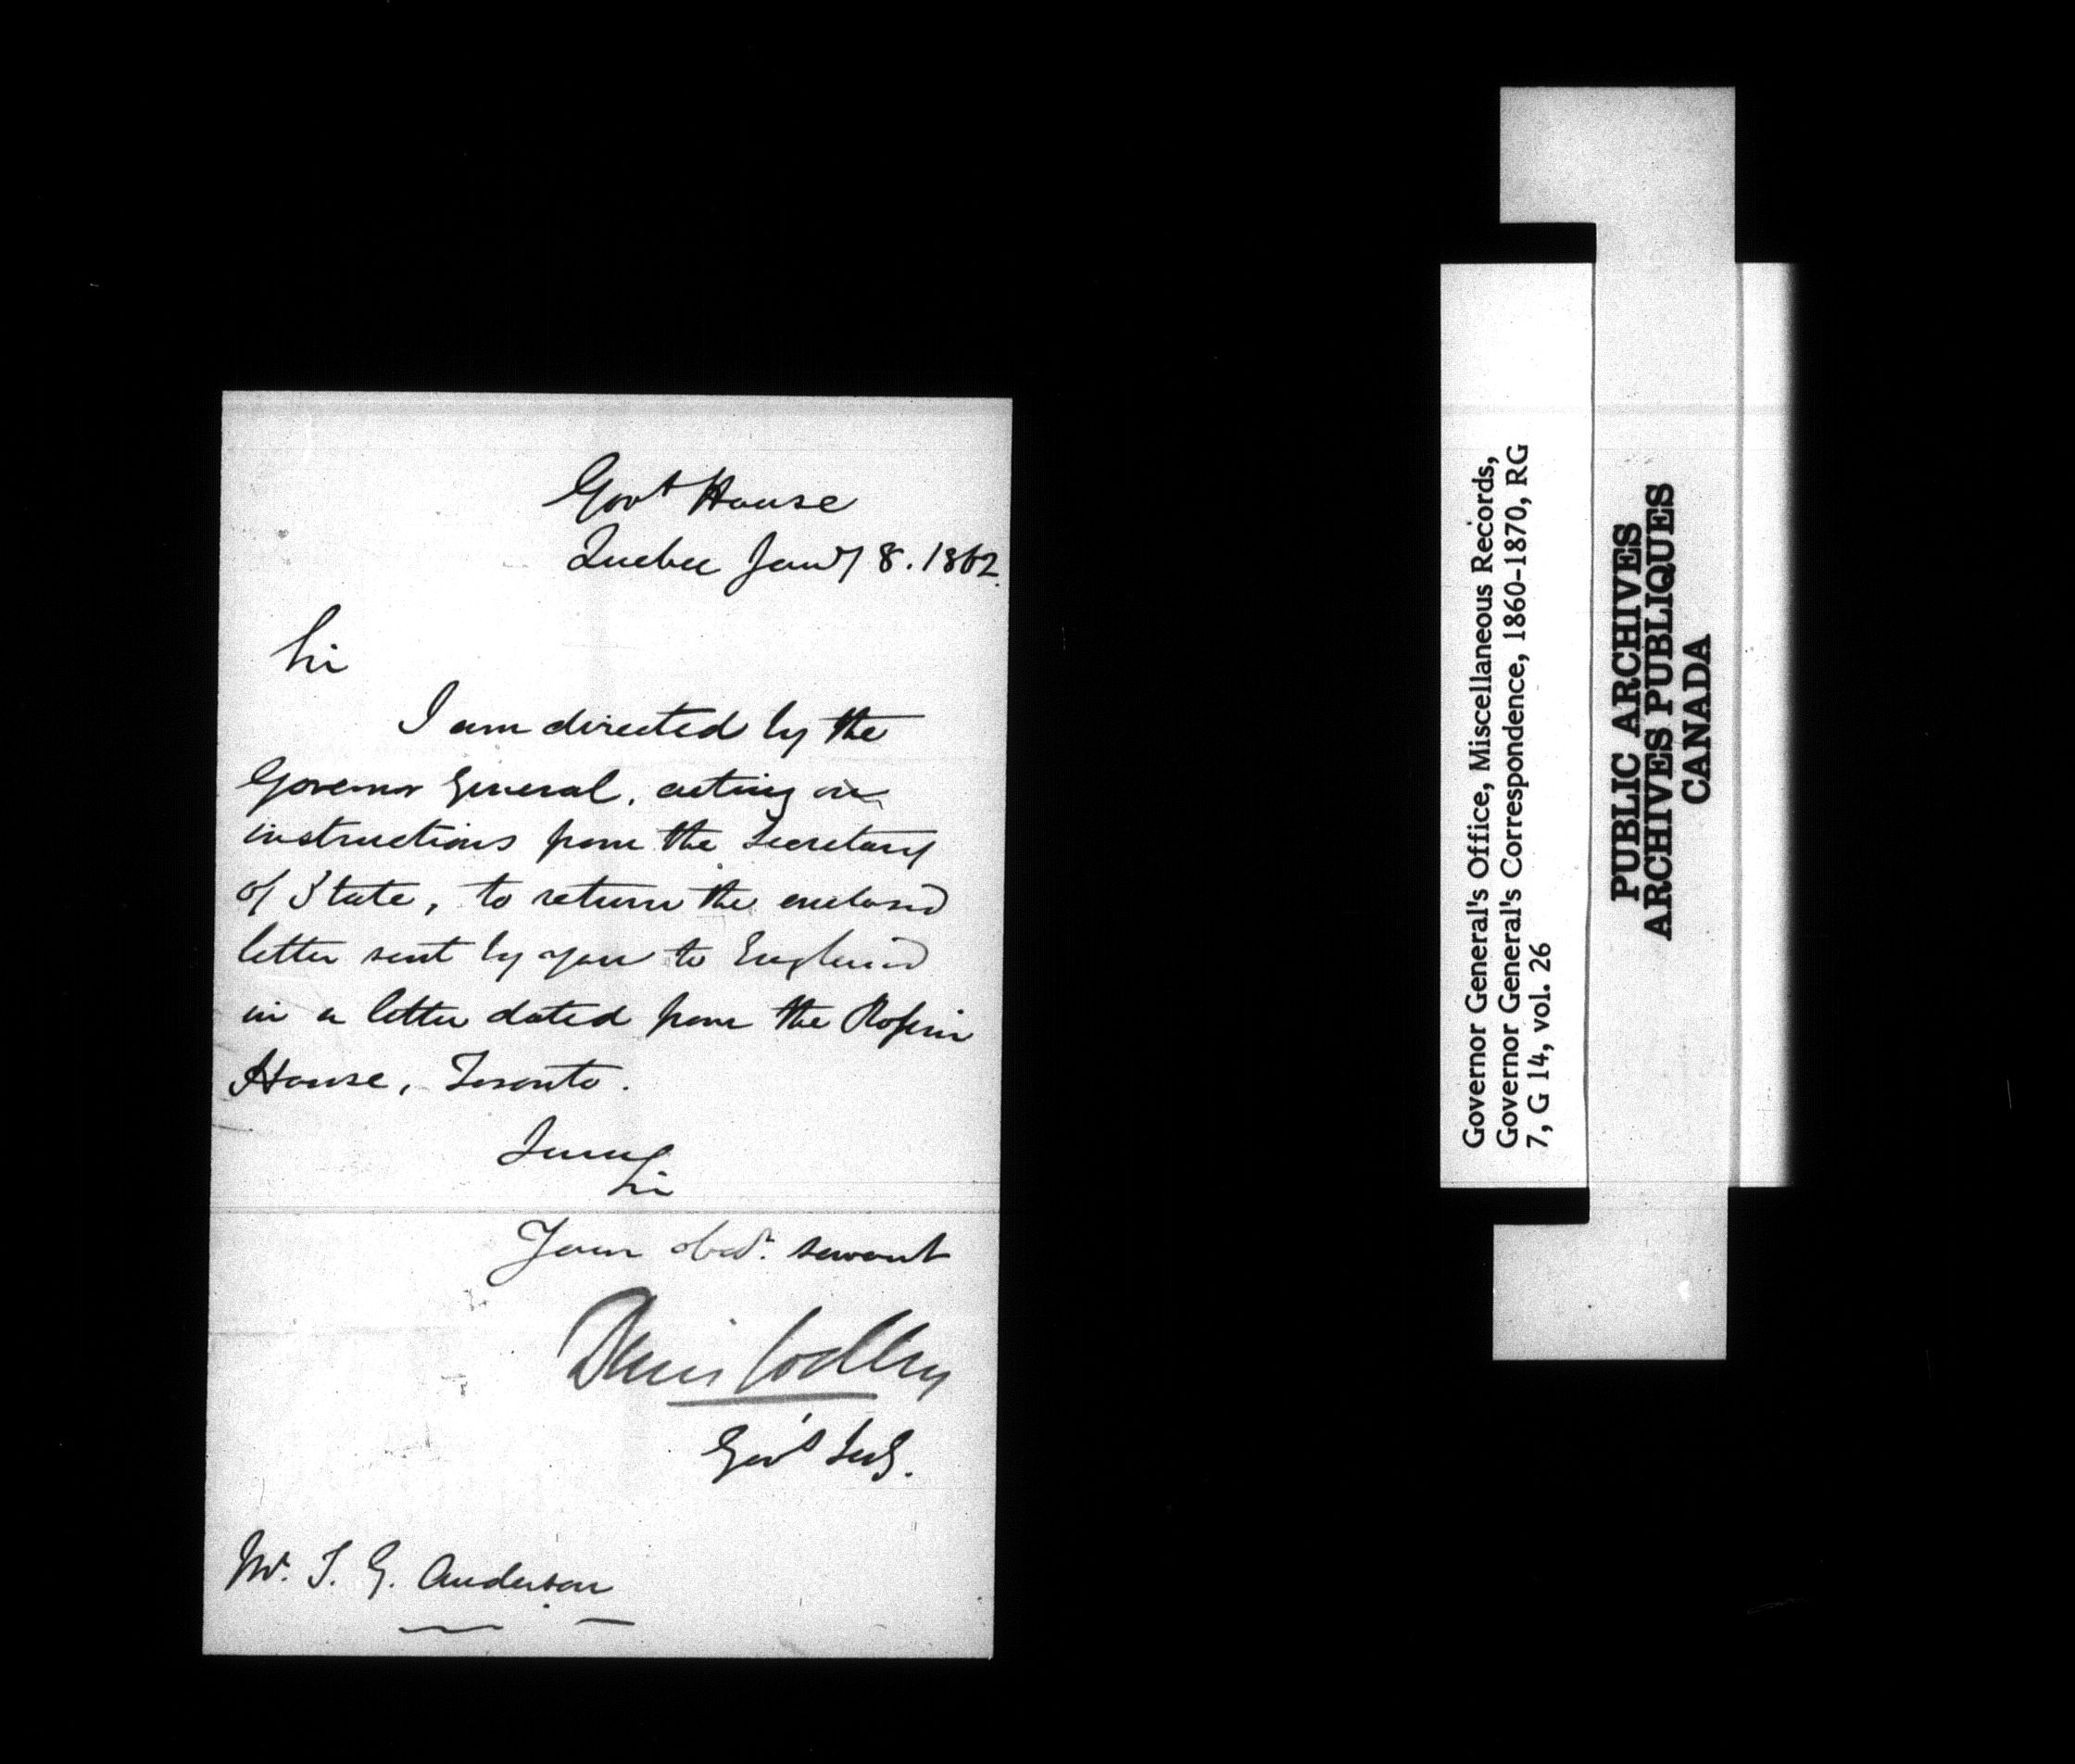 Govt House
Quebec Jany 8. 1862.
Sir
I am directed by the
Governor General, acting on
instructions from the Secretary
of State, to return the enclosed
letter sent by you to England
in a letter dated from the Rossin
House, Toronto.
Sir
Your obedt. servant
Denis Godley
Govr's Secy.
Mr. T. G. Anderson
Governor General's Office, Miscellaneous Records,
Governor General's Correspondence, 1860-1870, RG
7, G 14, vol. 26
PUBLIC ARCHIVES
ARCHIVES PUBLIQUES
CANADA